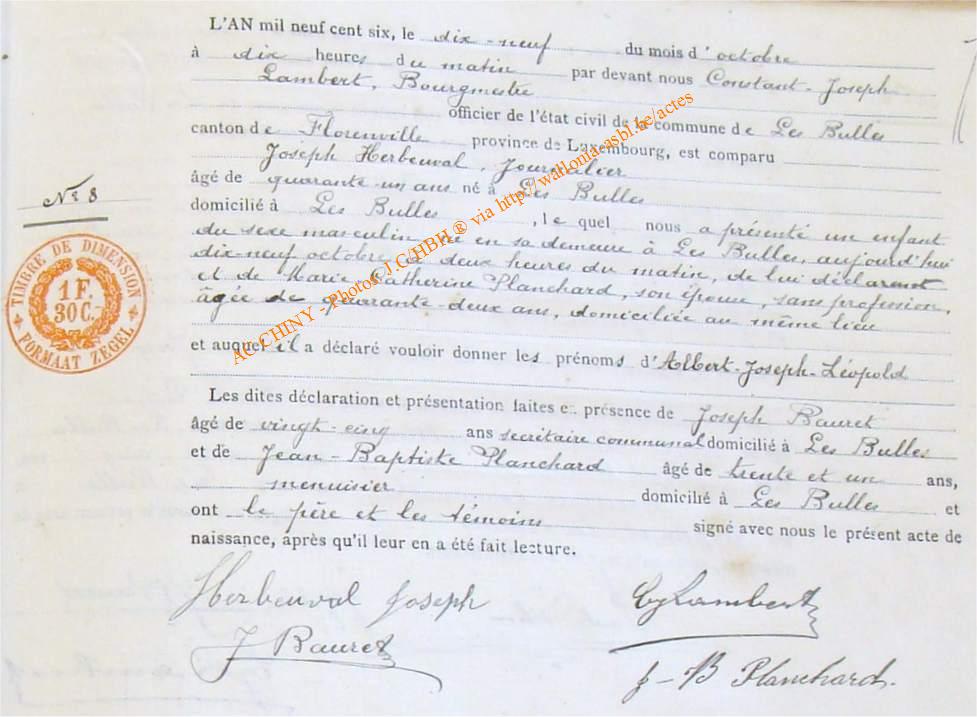 L'AN mil neuf cent six, le dix-neuf du mois d'octobre
à dix heures du matin par devant nous Constant-Joseph
Lambert, Bourgmestre
officier de l'état civil de la commune de Les Bulles
canton de Florenville province de Luxembourg, est comparu
Joseph Herbeuval, Journalier
âgé de quarante-un ans né à Les Bulles
N° 8
domicilié à Les Bulles, lequel nous a présenté un enfant
du sexe masculin né en sa demeure à Les Bulles, aujourd'hui
dix-neuf octobre à deux heures du matin, de lui déclarant
et de Marie Catherine Planchard, son épouse, sans profession,
âgée de quarante-deux ans, domiciliée au même lieu
TIMBRE DE DIMENSION
1 F.
30 C.
FORMAAT ZEGEL
AC CHINY - Photos J.C.HBH ® via http://wallonia-asbl.be/actes
et auquel il a déclaré vouloir donner les prénoms d'Albert-Joseph-Léopold
Les dites déclaration et présentation faites en présence de Joseph Bauret
âgé de vingt-cinq ans secrétaire communal domicilié à Les Bulles
et de Jean-Baptiste Planchard âgé de trente et un ans,
menuisier domicilié à Les Bulles et
ont le père et les témoins signé avec nous le présent acte de
naissance, après qu'il leur en a été fait lecture.
Herbeuval Joseph
CJLambert
J Bauret
J-B Planchard.